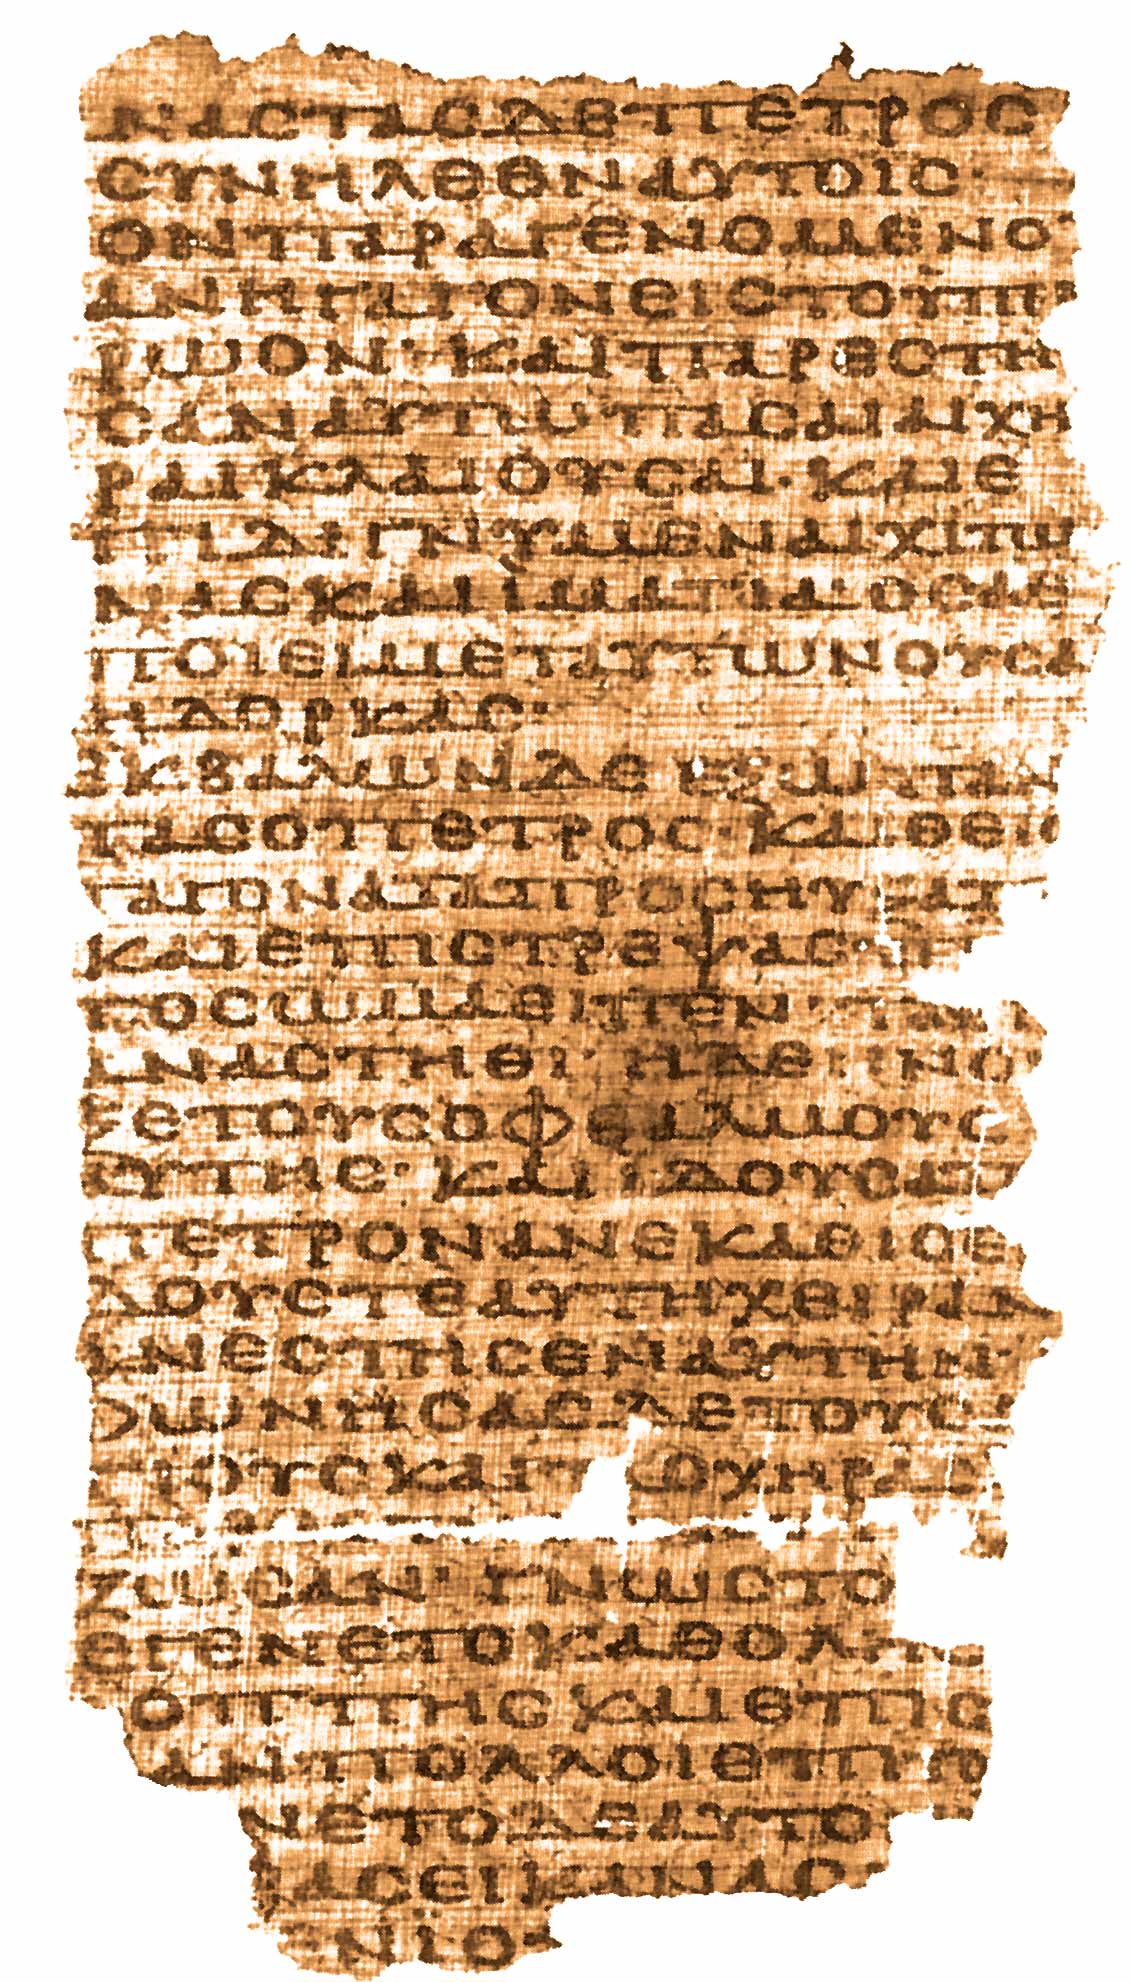 ΑΝΑCΤΑCΔΕΠΕΤΡΟC
CΥΝΗΛΘΕΝΑΥΤΟΙC·
ΟΝΠΑΡΑΓΕΝΟΜΕΝΟ
ΑΝΗΓΑΓΟΝΕΙCΤΟΥΠΕ
ΡΩΟΝ·ΚΑΙΠΑΡΕCΤΗ
CΑΝΑΥΤΩΠΑCΑΙΑΙΧΗ
ΡΑΙΚΛΑΙΟΥCΑΙ·ΚΑΙΕ
ΠΙΔΙΓΝΥΜΕΝΑΙΧΙΤΩ
ΝΑCΚΑΙΙΜΑΤΙΑΟCΑΕ
ΠΟΙΕΙΜΕΤΑΥΤΩΝΟΥCΑ
ΗΔΟΡΚΑC·
ΕΚΒΑΛΩΝΔΕΕΞΩΠΑΝ
ΤΑCΟΠΕΤΡΟC·ΚΑΙΘΕΙC
ΤΑΓΟΝΑΤΑΠΡΟCΗΥΞΑΤ
ΚΑΙΕΠΙCΤΡΕΨΑCΠΡ
ΤΟCΩΜΑΕΙΠΕΝ·ΤΑΒΙ
ΑΝΑCΤΗΘΙ·ΗΔΕΗΝΟΙ
ΞΕΤΟΥCΟΦΘΑΛΜΟΥC
ΑΥΤΗC·ΚΑΙΙΔΟΥCΑΤ
ΠΕΤΡΟΝΑΝΕΚΑΘΙCΕ
ΔΟΥCΤΕΑΥΤΗΧΕΙΡΑ
ΑΝΕCΤΗCΕΝΑΥΤΗΝ·
ΦΩΝΗCΑCΔΕΤΟΥCΑ
ΓΙΟΥCΚΑΙΤΑCΧΗΡΑC
ΖΩCΑΝ·ΓΝΩCΤΟ
ΕΓΕΝΕΤΟΚΑΘΟΛΗC
ΙΟΠΠΗCΚΑΙΕΠΙC
ΑΝΠΟΛΛΟΙΕΠΙΤΟ
ΝΕΤΟΔΕΑΥΤΟ
ΡΑCΕΙΚΑΝΑC
ΕΝΙΟ